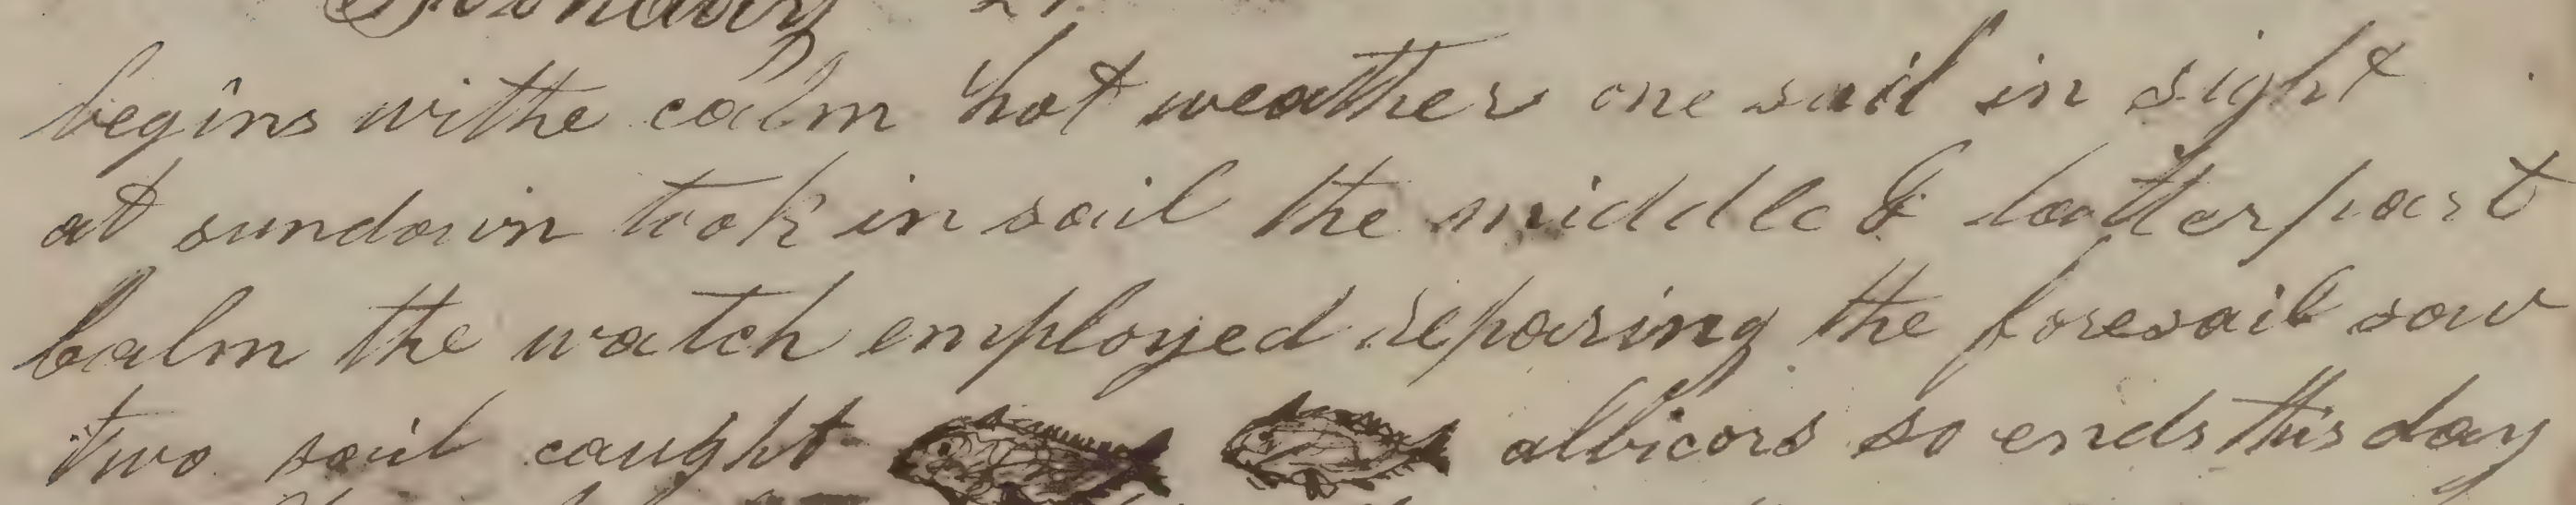 begins withe calm hot weather one sail in sight
at sundown took in sail the middle & latter part
Calm the watch employed reparing the foresail saw
two sail caught albicors so ends this day